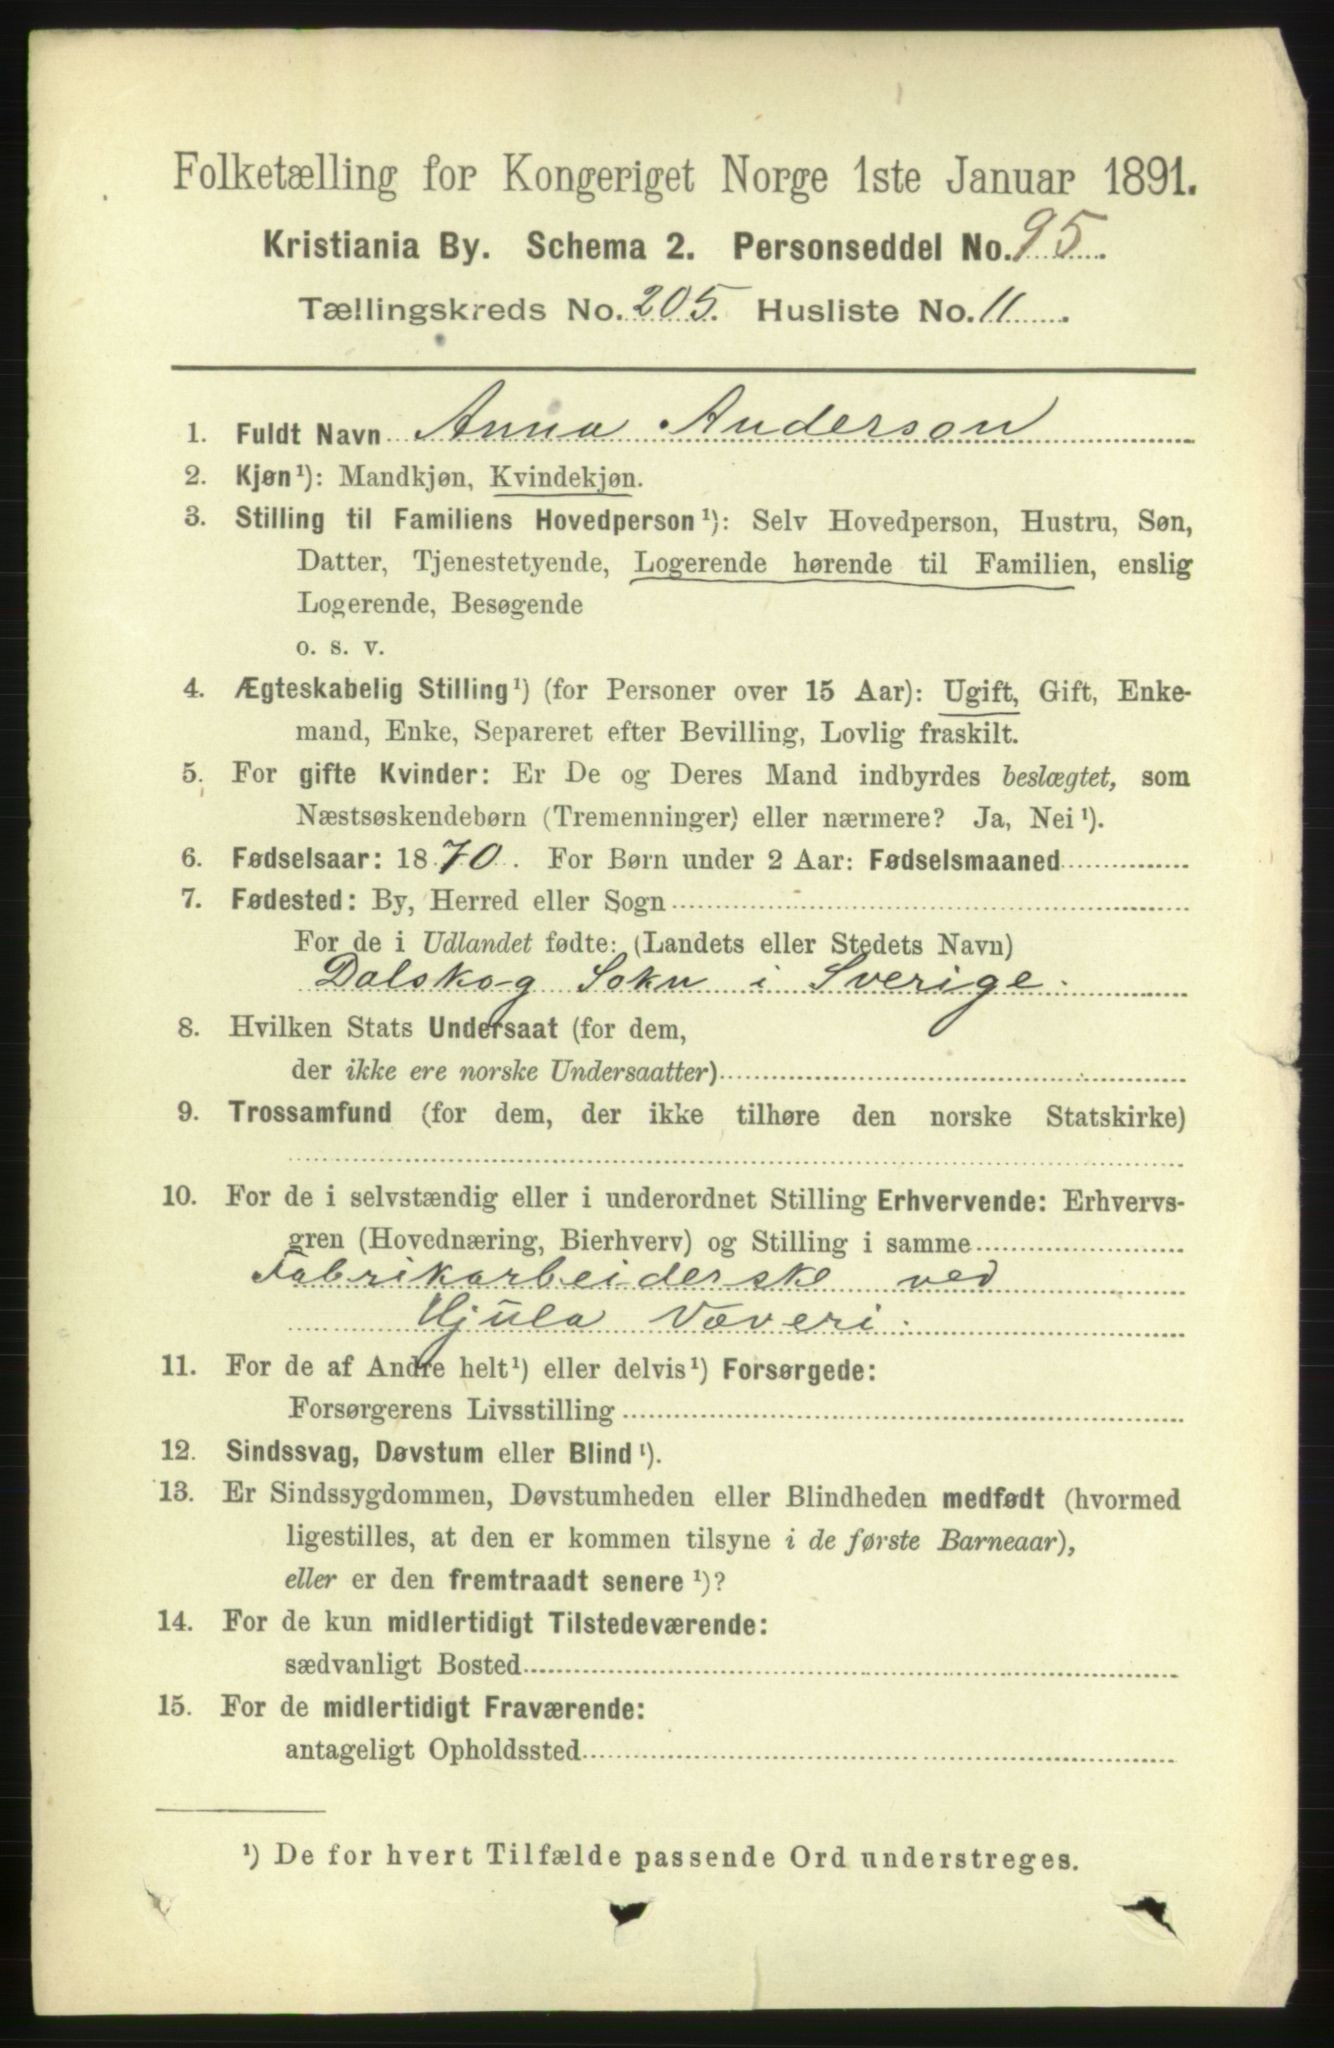 Folketælling for Kongeriget Norge 1ste Januar 1891.
Kristiania By. Schema 2. Personseddel No. 95.
Tællingskreds No. 205. Husliste No. 11.
1. Fuldt Navn Anna Anderson
2. Kjøn¹): Mandkjøn, Kvindekjøn.
3. Stilling til Familiens Hovedperson¹): Selv Hovedperson, Hustru, Søn,
Datter, Tjenestetyende, Logerende hørende til Familien, enslig
Logerende, Besøgende
o. s. v.
4. Ægteskabelig Stilling¹) (for Personer over 15 Aar): Ugift, Gift, Enke-
mand, Enke, Separeret efter Bevilling, Lovlig fraskilt.
5. For gifte Kvinder: Er De og Deres Mand indbyrdes beslægtet, som
Næstsøskendebørn (Tremenninger) eller nærmere? Ja, Nei¹).
6. Fødselsaar: 1870. For Børn under 2 Aar: Fødselsmaaned
7. Fødested: By, Herred eller Sogn
For de i Udlandet fødte: (Landets eller Stedets Navn)
Dalskog Sokn i Sverige.
8. Hvilken Stats Undersaat (for dem,
der ikke ere norske Undersaatter)
9. Trossamfund (for dem, der ikke tilhøre den norske Statskirke)
10. For de i selvstændig eller i underordnet Stilling Erhvervende: Erhvervs-
gren (Hovednæring, Bierhverv) og Stilling i samme
Fabrikarbeiderske ved
Hjula Væveri.
11. For de af Andre helt¹) eller delvis¹) Forsørgede:
Forsørgerens Livsstilling
12. Sindssvag, Døvstum eller Blind¹).
13. Er Sindssygdommen, Døvstumheden eller Blindheden medfødt (hvormed
ligestilles, at den er kommen tilsyne i de første Barneaar),
eller er den fremtraadt senere¹)?
14. For de kun midlertidigt Tilstedeværende:
sædvanligt Bosted
15. For de midlertidigt Fraværende:
antageligt Opholdssted
¹) De for hvert Tilfælde passende Ord understreges.